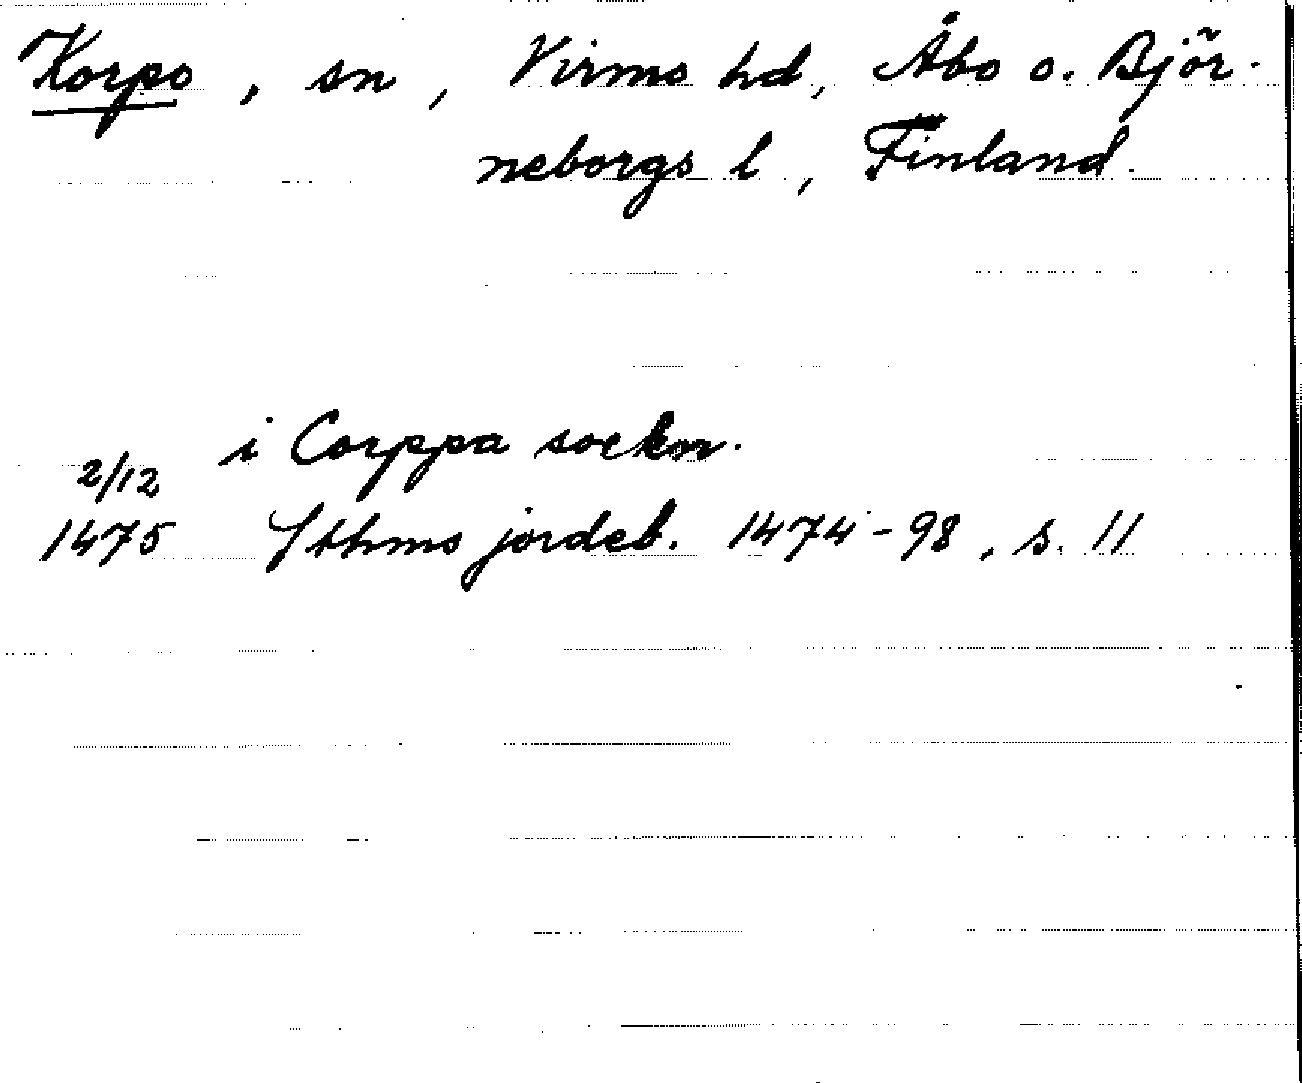 Korpo, sn, Virmo hd, Åbo o. Björ-
neborgs l, Finland.
i Corppa sockn.
2/12
1475 Sthms jordeb. 1474-98, s. 11